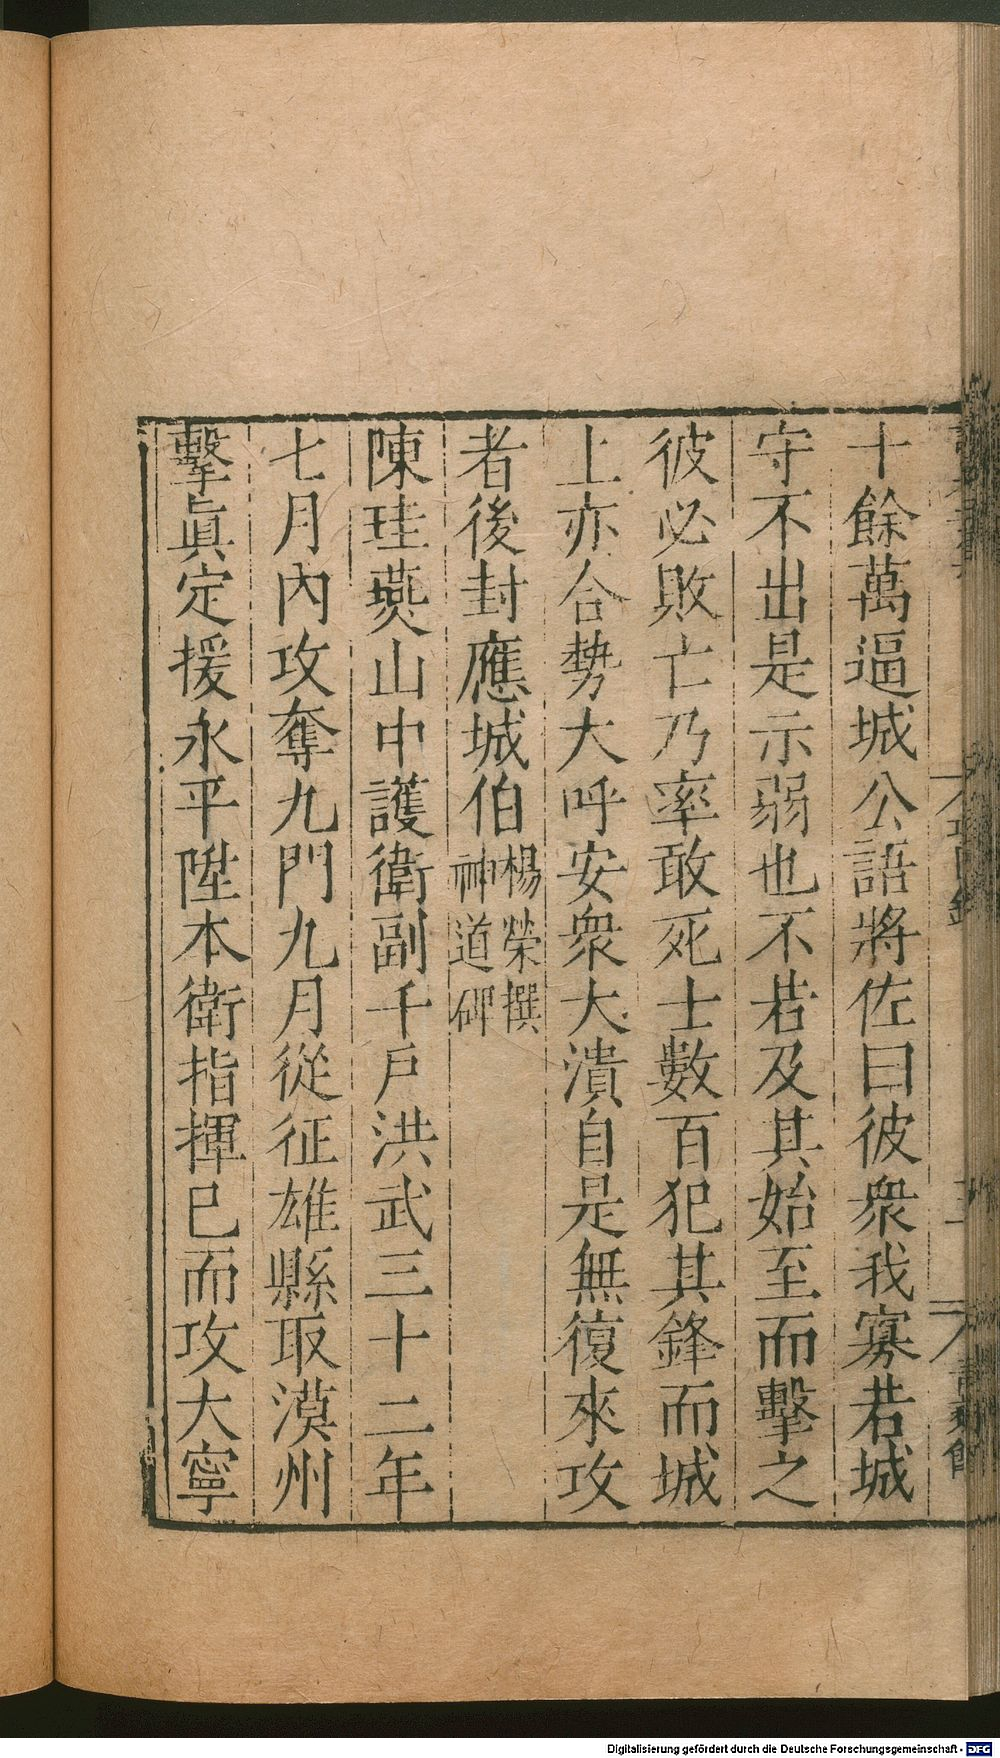 十餘萬逼城公語將佐曰彼衆我寡若城
守不出是示弱也不若及其始至而擊之
彼必敗亡乃率敢死士數百犯其鋒而城
上亦合勢大呼安衆大潰自是無復來攻
者後封應城伯楊榮撰神道碑
陳珪燕山中護衛副千戶洪武三十二年
七月內攻奪九門九月從征雄縣取漠州
擊眞定援永平陞本衛指揮已而攻大寧
Digitalisierung gefördert durch die Deutsche Forschungsgemeinschaft - DFG